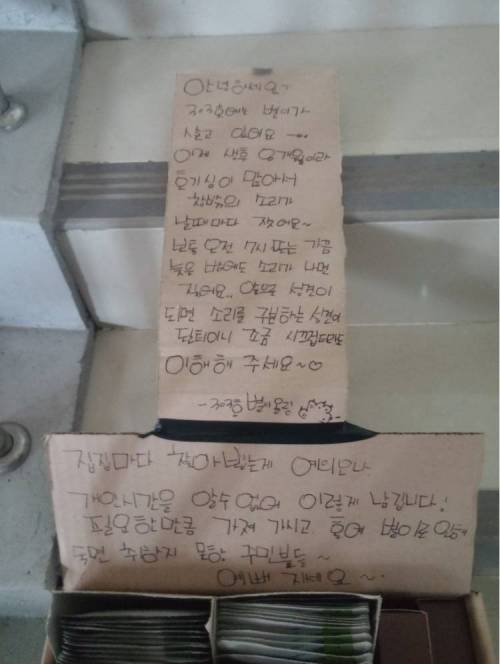 안녕하세요?
303호에는 별이가
살고 있어요 ...
이제 생후 9개월이라
호기심이 많아서
창밖의 소리가
날때마다 짖어요~
보통 오전 7시 또는 가끔
늦은 밤에도 소리가 나면
짖어요.. 앞으로 성견이
되면 소리를 구분하는 성견이
될터이니 조금 시끄럽더라도
이해해 주세요~♡
- 303호 별이올림
집집마다 찾아뵙는게 예의오나
개인시간을 알수 없어 이렇게 남깁니다!
필요한만큼 가져 가시고 혹여 별이로 인해
숙면 취하지 못한 주민분들~
예쁘게 지내요~